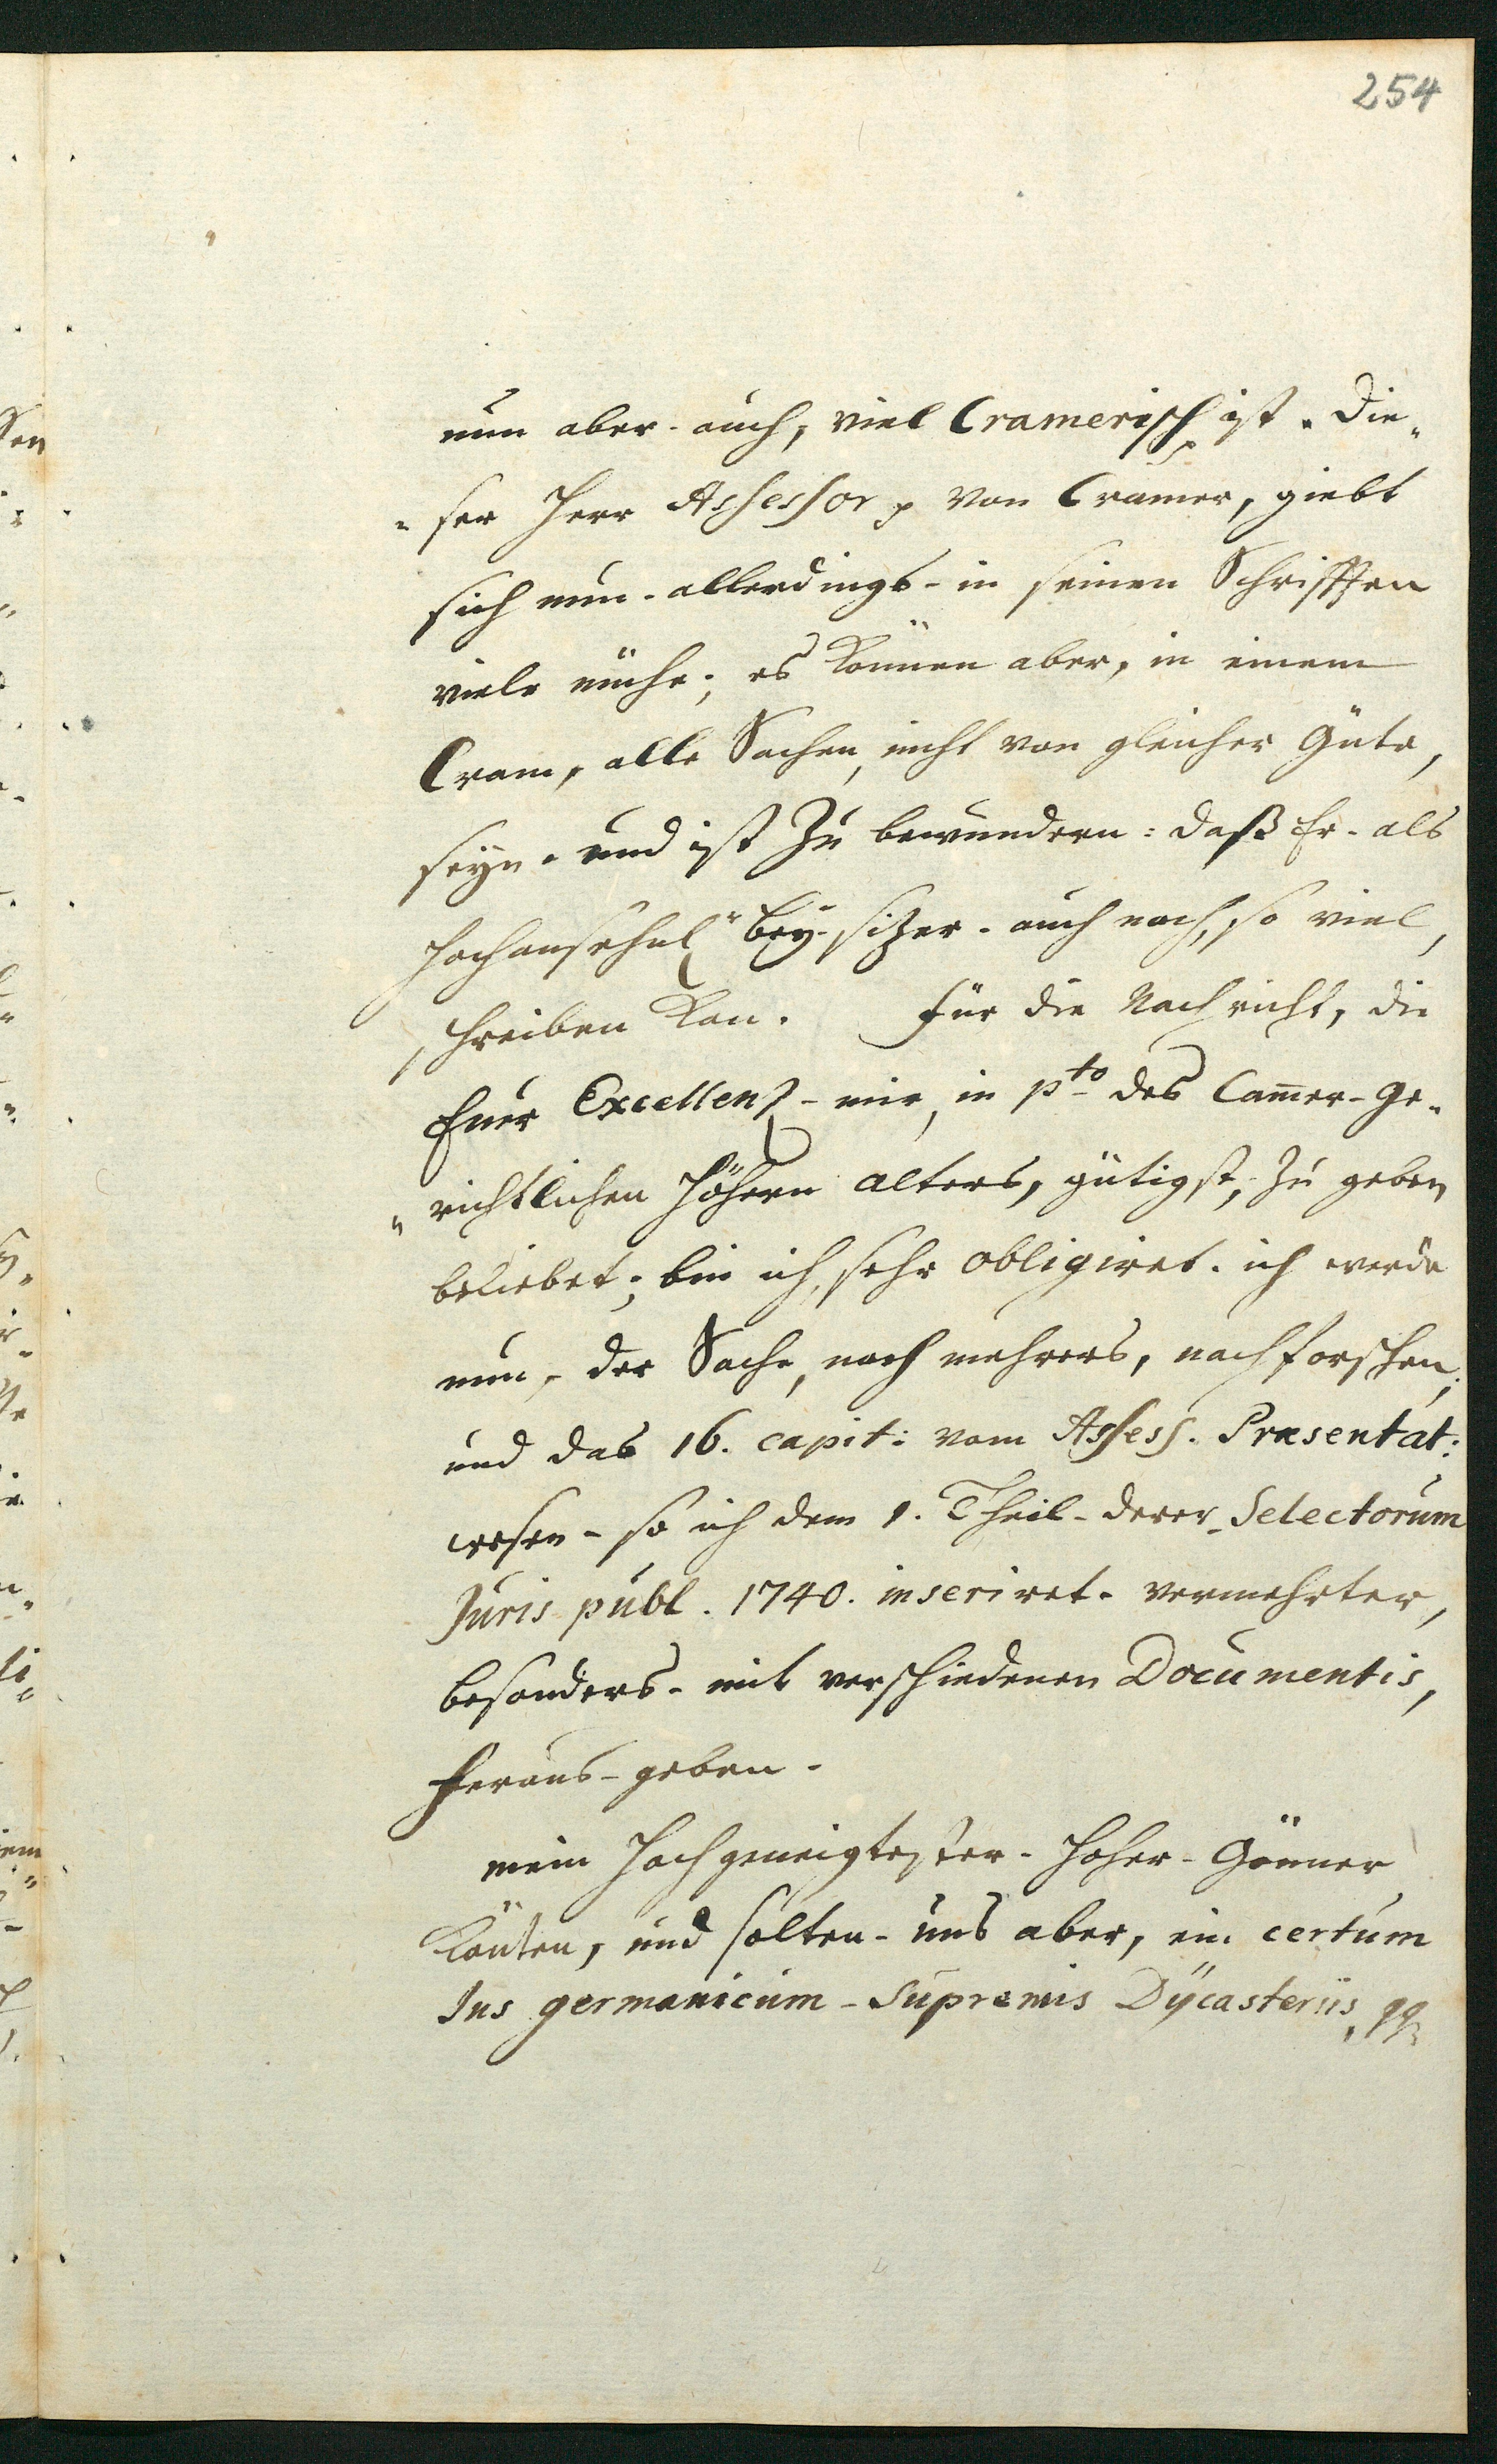 254
nun aber - auch, viel Cramerisch ist. Die„
„ser Herr Assessor p von Cramer, giebt
sich nun - allerdings - in seinen Schrifften
viele mühe; es können aber, in einem
Cram, alle Sachen, nicht von gleicher Güte,
seyn. und ist zu bewundern: daß Er - als
hochansehnl. Bey-sizer - auch noch, so viel,
schreiben kan. Für die Nachricht, die
Euer Excellenz - mir, in pto des Cam̄er-Ge„
„richtlichen höhern alters, gütigst, zu geben
beliebet; bin ich, sehr obligiret. ich werde
nun, der Sache, noch mehrers, nachforschen;
und das 16. capit: vom Assess. Præsentat:
wesen - so ich dem 1. Theil - derer Selectorum
Juris publ. 1740. inseriret - vermehrter,
besonders - mit verschiedenen Documentis,
heraus-geben.
mein Hochgeneigtester - Hoher - Gönner
könten, und solten - uns aber, ein certum
Jus germanicum - Supremis Dÿcasteriis,